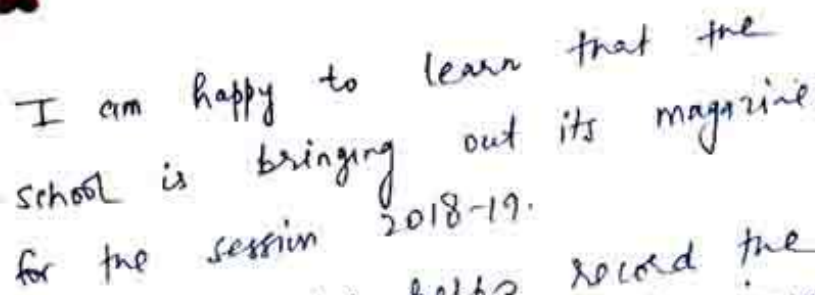 I am happy to learn that the
school is bringing out its magazine
for the session 2018-19.
helps record the